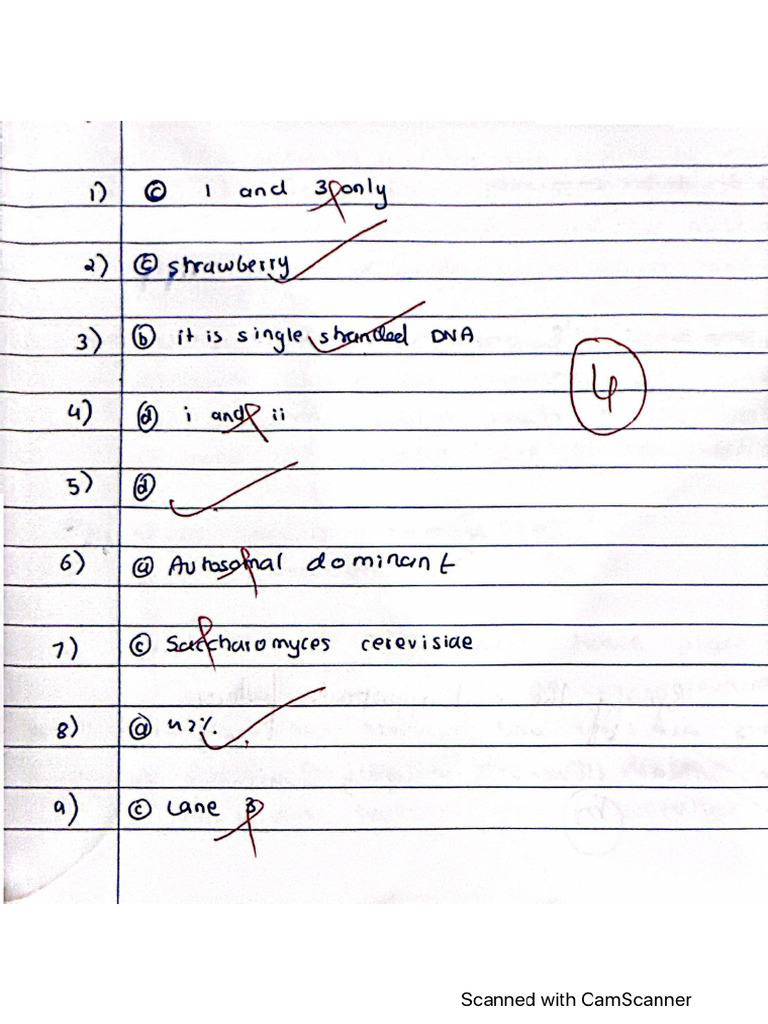 1) (c) 1 and 3 only
2) (c) strawberry
3) (b) it is single stranded DNA
4
4) (d) i and ii
5) (d)
6) (a) Autosomal dominant
7) (c) Saccharomyces cerevisiae
8) (a) 42%
9) (c) Lane 3
Scanned with CamScanner